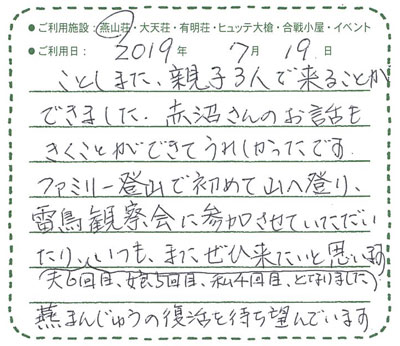 ●ご利用施設：燕山荘・大天荘・有明荘・ヒュッテ大槍・合戦小屋・イベント
●ご利用日：2019年7月19日
ことしまた、親子3人で来ることが
できました。赤沼さんのお話も
きくことができてうれしかったです。
ファミリー登山で初めて山へ登り、
雷鳥観察会に参加させていただい
たり、いつも、またぜひ来たいと思います
(夫6回目、娘5回目、私4回目、となりました)
燕まんじゅうの復活を待ち望んでいます